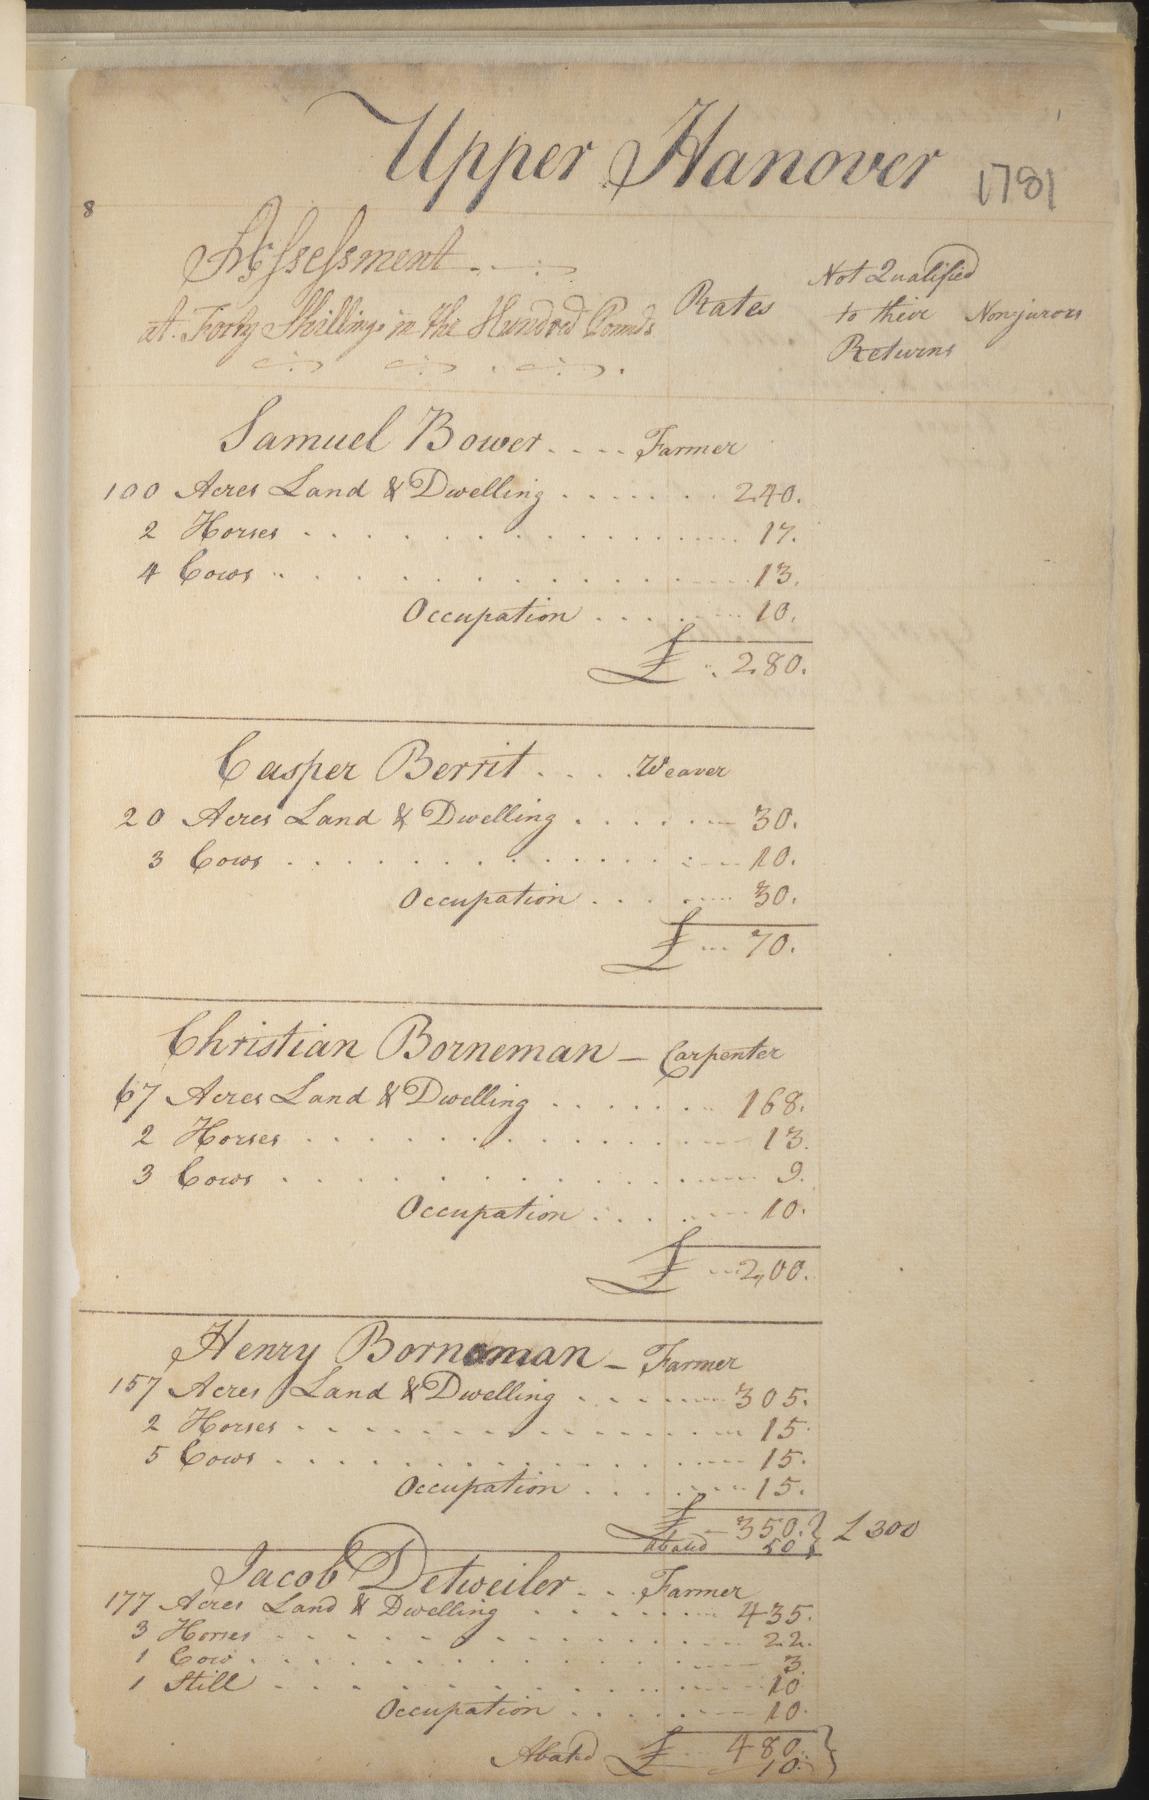 Upper Hanover 1781
8
Assessment
at Forty Shillings in the Hundred Pounds
Rates
Not Qualified
to their
Returns
Nonjurors
Samuel Bower .... Farmer
100 Acres Land & Dwelling ....... 240.
2 Horses ....... 17.
4 Cows ....... 13.
Occupation ....... 10.
£ .. 280.
Casper Berrit .... Weaver
20 Acres Land & Dwelling ....... 30.
3 Cows ....... 10.
Occupation ....... 30.
£ ... 70.
Christian Borneman – Carpenter
67 Acres Land & Dwelling ....... 168.
2 Horses ....... 13.
3 Cows ....... 9.
Occupation ....... 10.
£ ... 200.
Henry Borneman – Farmer
157 Acres Land & Dwelling ....... 305.
2 Horses ....... 15.
5 Cows ....... 15.
Occupation ....... 15.
£ – 350. } £ 300
abated 50 }
Jacob Detweiler ... Farmer
177 Acres Land & Dwelling ....... 435.
3 Horses ....... 22.
1 Cow ....... 3.
1 Still ....... 10
Occupation ....... 10.
£ ... 480. }
Abated 10. }